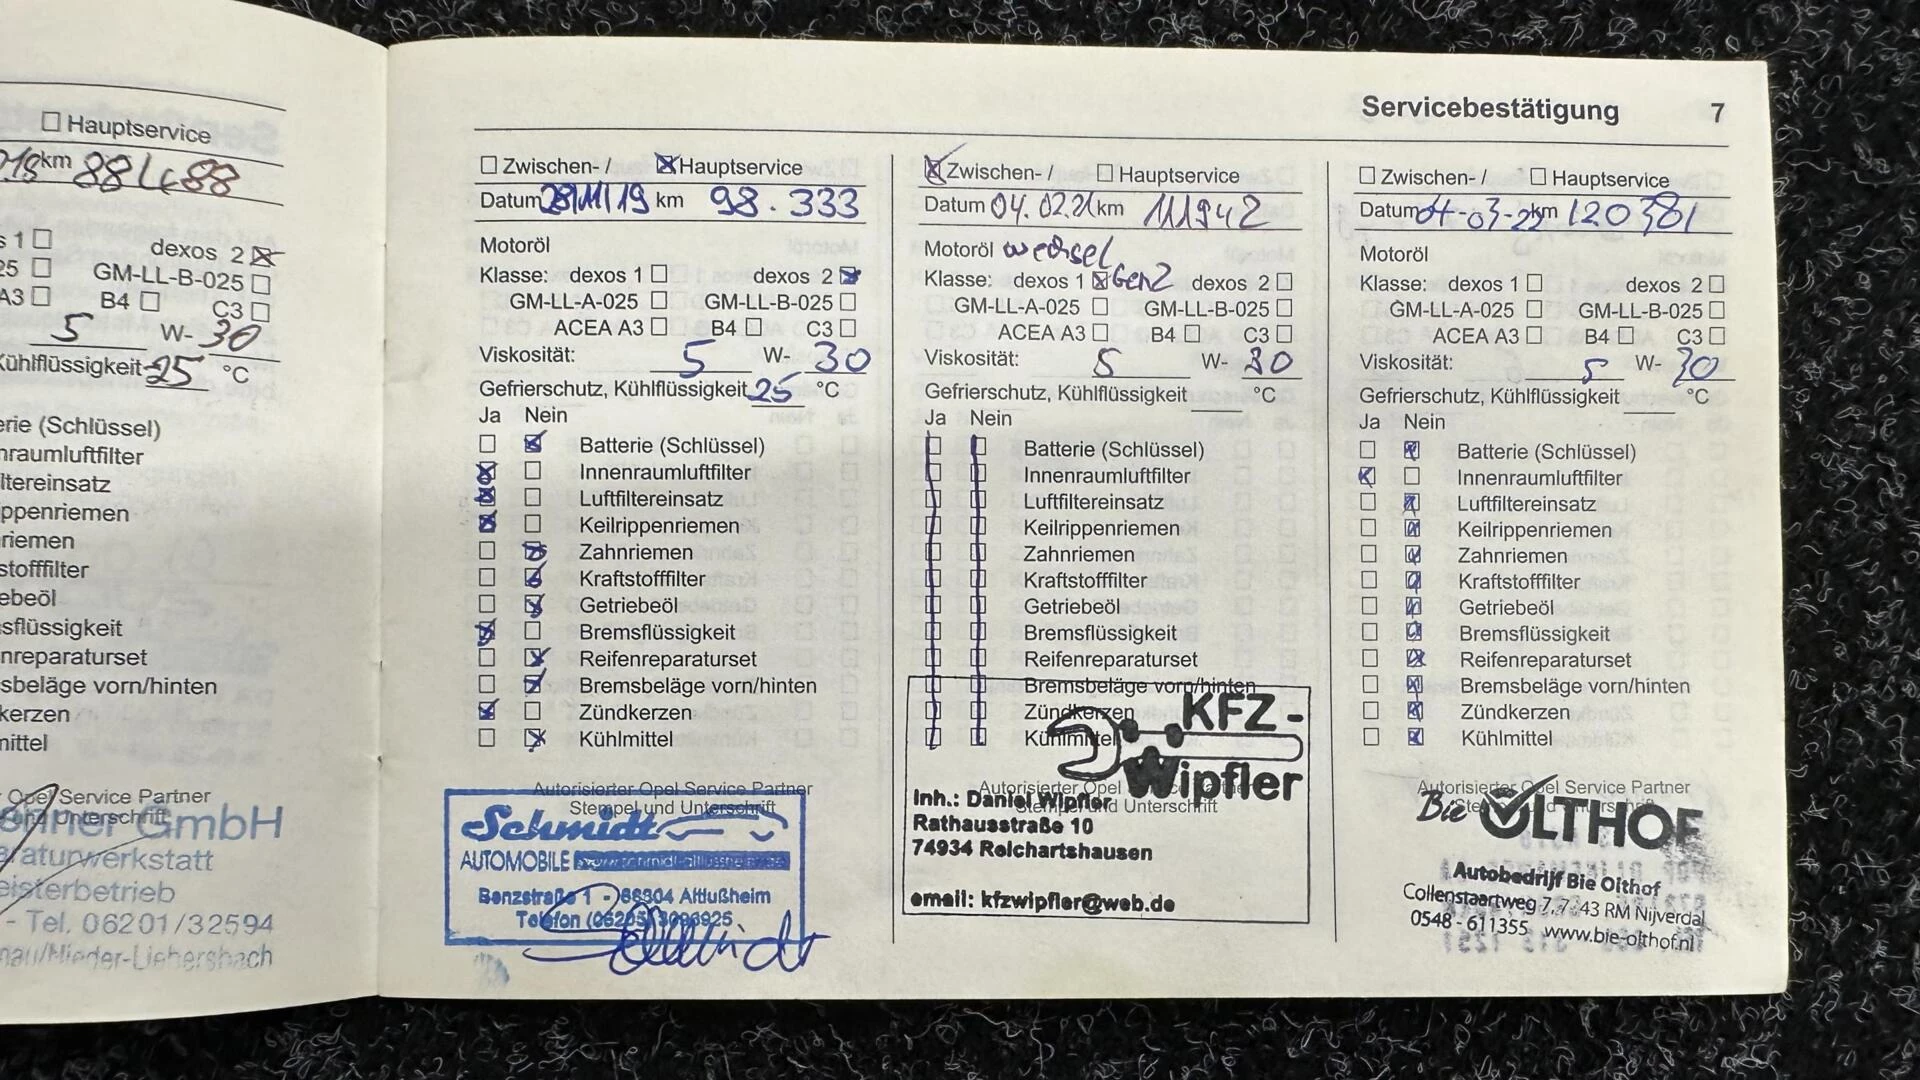 Hauptservice
km 88488
dexos 2
GM-LL-B-025
A3 B4 C3
5 W- 30
Kühlflüssigkeit -25 °C
(Schlüssel)
Servicebestätigung 7
Zwischen- / Hauptservice
Datum 28/11/19 km 98.333
Motoröl
Klasse: dexos 1 dexos 2
GM-LL-A-025 GM-LL-B-025
ACEA A3 B4 C3
Viskosität: 5 W- 30
Gefrierschutz, Kühlflüssigkeit 25 °C
Ja Nein
Batterie (Schlüssel)
Innenraumluftfilter
Luftfiltereinsatz
Keilrippenriemen
Zahnriemen
Kraftstofffilter
Getriebeöl
Bremsflüssigkeit
Reifenreparaturset
Bremsbeläge vorn/hinten
Zündkerzen
Kühlmittel
Autorisierter Opel Service Partner
Stempel und Unterschrift
Schmidt
AUTOMOBILE
Benzstraße 1 - 68804 Altlußheim
Telefon (06205) 3096925
Zwischen- / Hauptservice
Datum 04.02.21 km 111942
Motoröl wechsel
Klasse: dexos 1 Gen2 dexos 2
GM-LL-A-025 GM-LL-B-025
ACEA A3 B4 C3
Viskosität: 5 W- 30
Gefrierschutz, Kühlflüssigkeit °C
Ja Nein
Batterie (Schlüssel)
Innenraumluftfilter
Luftfiltereinsatz
Keilrippenriemen
Zahnriemen
Kraftstofffilter
Getriebeöl
Bremsflüssigkeit
Reifenreparaturset
Bremsbeläge vorn/hinten
Zündkerzen
Kühlmittel
KFZ-
Wipfler
Autorisierter Opel Service
Stempel und Unterschrift
Inh.: Daniel Wipfler
Rathausstraße 10
74934 Reichartshausen
email: kfzwipfler@web.de
Zwischen- / Hauptservice
Datum 04-03-22 km 120381
Motoröl
Klasse: dexos 1 dexos 2
GM-LL-A-025 GM-LL-B-025
ACEA A3 B4 C3
Viskosität: 5 W- 30
Gefrierschutz, Kühlflüssigkeit °C
Ja Nein
Batterie (Schlüssel)
Innenraumluftfilter
Luftfiltereinsatz
Keilrippenriemen
Zahnriemen
Kraftstofffilter
Getriebeöl
Bremsflüssigkeit
Reifenreparaturset
Bremsbeläge vorn/hinten
Zündkerzen
Kühlmittel
Autorisierter Opel Service Partner
Bie OLTHOF
Autobedrijf Bie Olthof
Collenstaartweg 7, 7443 RM Nijverdal
0548 - 611355 www.bie-olthof.nl
Opel Service Partner
und Unterschrift
GmbH
- Tel. 06201/32594